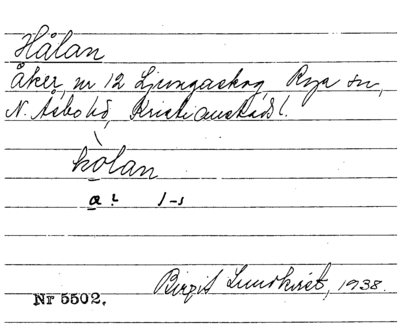 Hålan
Åker, nr 12 Ljungaskog, Rya sn,
N. Åsbo hd, Kristianstads l.
hòlan
a
Birgit Lundkvist, 1938.
Nr 5502.